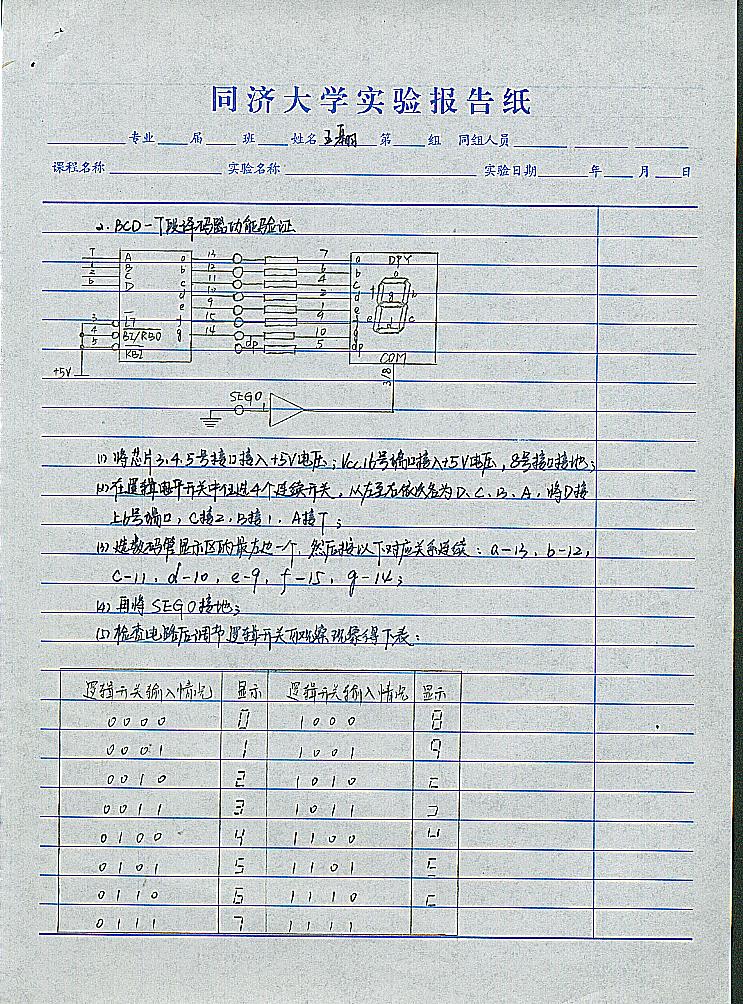 同济大学实验报告纸
专业 届 班 姓名 王磊 第 组 同组人员
课程名称 实验名称 实验日期 年 月 日
2. BCD-7段译码器功能验证
7 A a 13 7 a DPY
1 B b 12 6 b
2 C c 11 4 c
6 D d 10 2 d
e 9 1 e
3 LT f 15 9 f
4 BI/RBO g 14 10 g
5 RBI dp 5 dp
+5V COM
3/8
SEG0 1
(1) 将芯片3.4.5号接口接入+5V电压；Vcc 16号端口接入+5V电压，8号接口接地；
(2) 在逻辑电平开关中任选4个连续开关，从左至右依次名为D、C、B、A，将D接
上6号端口，C接2，B接1，A接7；
(3) 选数码管显示区的最左边一个，然后按以下对应关系连续：a-13，b-12，
c-11，d-10，e-9，f-15，g-14；
(4) 再将SEG0接地；
(5) 检查电路后调节逻辑开关而观察现象得下表：
逻辑开关输入情况 显示 逻辑开关输入情况 显示
0000 0 1000 8
0001 1 1001 9
0010 2 1010
0011 3 1011
0100 4 1100
0101 5 1101
0110 6 1110
0111 7 1111